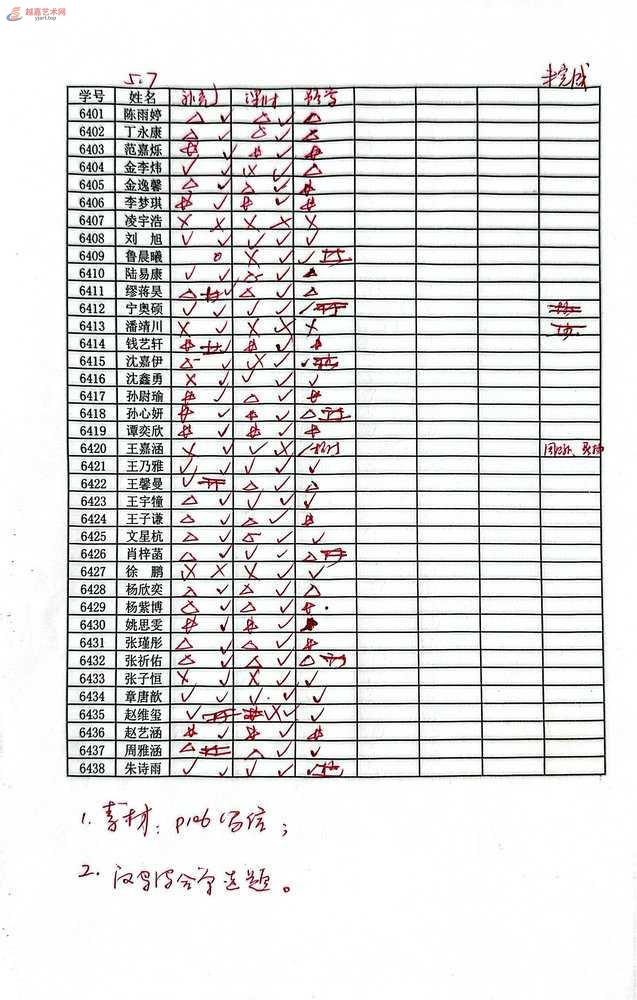 越嘉艺术网
yjart.top
5.7 未完成
学号 姓名 默写 课时
6401 陈雨婷 △ ✓ △ ✓ △
6402 丁永康 △ ✓ △ ✓ △
6403 范嘉烁 ✓ ✓
6404 金李炜 ✓ ✓ ✓ △
6405 金逸馨 △ ✓ △ ✓
6406 李梦琪 ✓ ✓
6407 凌宇浩 X X X X X
6408 刘旭 ✓ ✓ ✓ ✓ ✓
6409 鲁晨曦 X ✓ ✓
6410 陆易康 ✓ ✓ ✓
6411 缪蒋昊 △ △ ✓ △
6412 宁奥硕 ✓ ✓ ✓ ✓
6413 潘靖川 X ✓ X X
6414 钱艺轩 ✓
6415 沈嘉伊 ✓
6416 沈鑫勇 X ✓ ✓ ✓ ✓
6417 孙尉瑜 ✓ △ ✓
6418 孙心妍 ✓ ✓ △
6419 谭奕欣 ✓ ✓
6420 王嘉涵 X ✓ ✓ X
6421 王乃雅 ✓ ✓ ✓ ✓ ✓
6422 王馨曼 ✓ △ ✓ △
6423 王宇犝 △ ✓ ✓ ✓ ✓
6424 王子谦 △ ✓ △ ✓
6425 文星杭 △ ✓ ✓ ✓
6426 肖梓菡 △ ✓ ✓ ✓ △
6427 徐鹏 X X X ✓ ✓
6428 杨欣奕 △ ✓ △ ✓ △
6429 杨紫博 △ ✓ △ ✓
6430 姚思雯 ✓ ✓
6431 张瑾彤 △ ✓ △ ✓
6432 张祈佑 △ ✓ △ ✓ △
6433 张子恒 X ✓ X ✓ ✓
6434 章唐歆 ✓ ✓ ✓ ✓ ✓
6435 赵维玺 ✓ X ✓ ✓
6436 赵艺涵 ✓ ✓
6437 周雅涵 △ △ ✓ ✓
6438 朱诗雨 ✓ ✓ ✓ ✓ ✓
1. 素材：P106 写信；
2. 题。